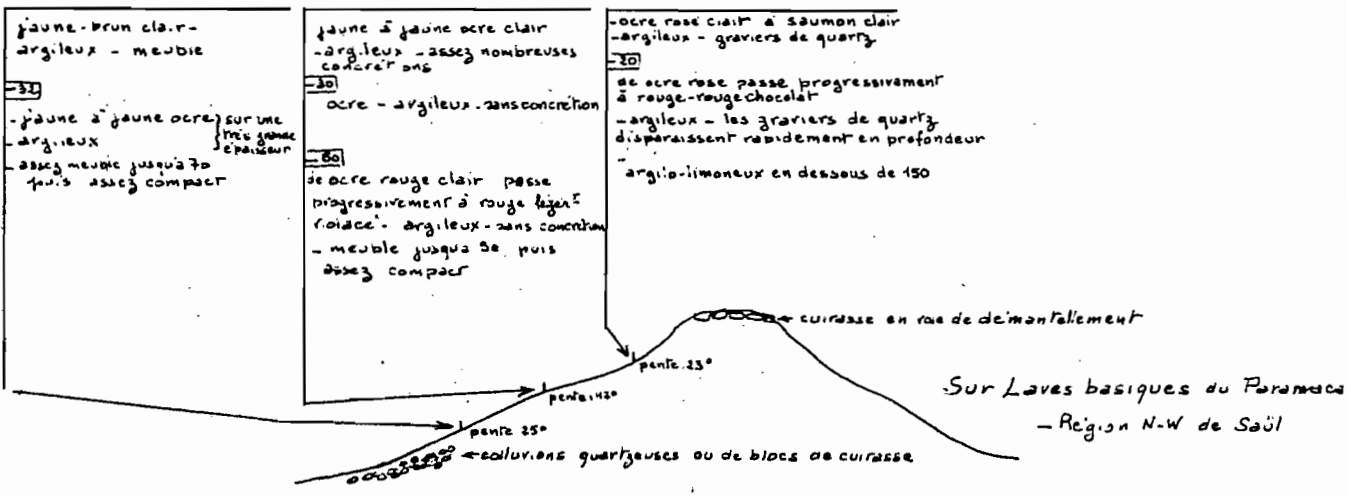 jaune-brun clair-
argileux - meuble
-32
- jaune à jaune ocre
- argileux
sur une
très grande
épaisseur
- assez meuble jusqu'à 70
puis assez compact
jaune à jaune ocre clair
- argileux - assez nombreuses
concrétions
-30
ocre - argileux - sans concrétion
-60
de ocre rouge clair passe
progressivement à rouge légert
violacé - argileux - sans concrétion
- meuble jusqua 90 puis
assez compact
-ocre rosé clair à saumon clair
-argileux - graviers de quartz
-20
de ocre rose passe progressivement
à rouge-rouge chocolat
-argileux - les graviers de quartz
disparaissent rapidement en profondeur
- argilo-limoneux en dessous de 150
cuirasse en voie de démantellement
pente 23°
pente 12°
pente 25°
colluvions quartzeuses ou de blocs de cuirasse
Sur Laves basiques du Paramaca
- Région N-W de Saül